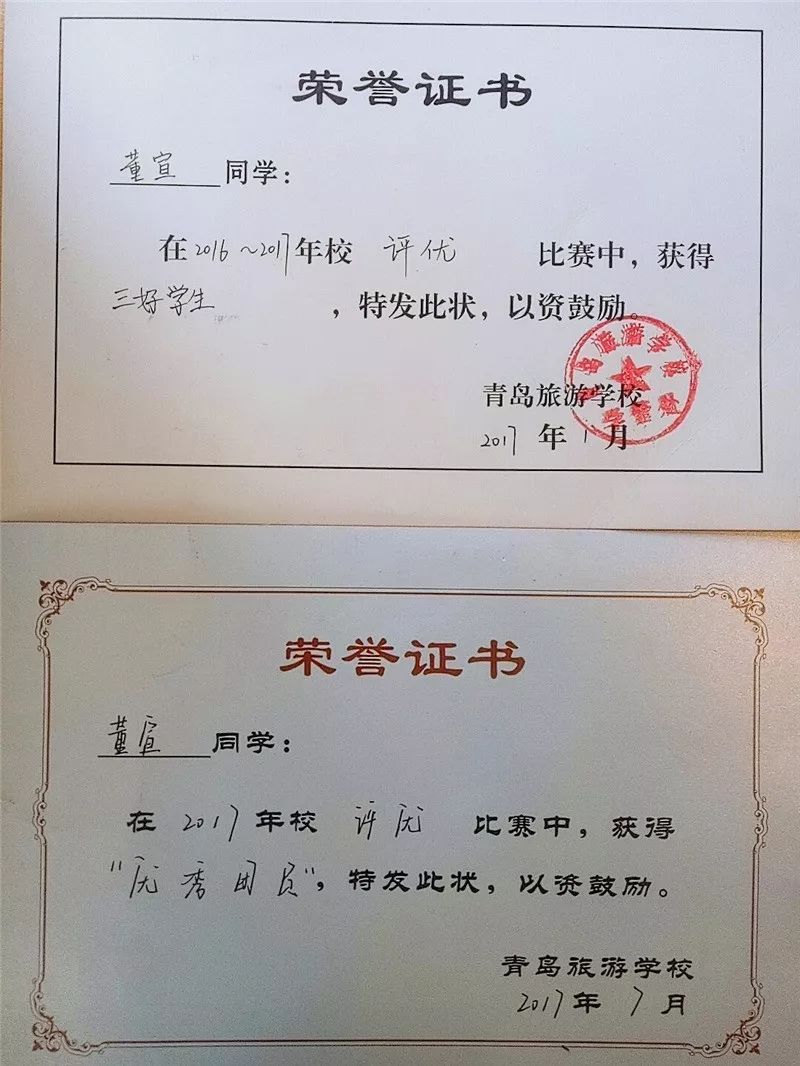 荣誉证书
董宣 同学：
在2016～2017年校 评优 比赛中，获得
三好学生，特发此状，以资鼓励。
青岛旅游学校
2017 年 1 月
荣誉证书
董宣 同学：
在 2017 年校 评优 比赛中，获得
"优秀团员"，特发此状，以资鼓励。
青岛旅游学校
2017年 7 月